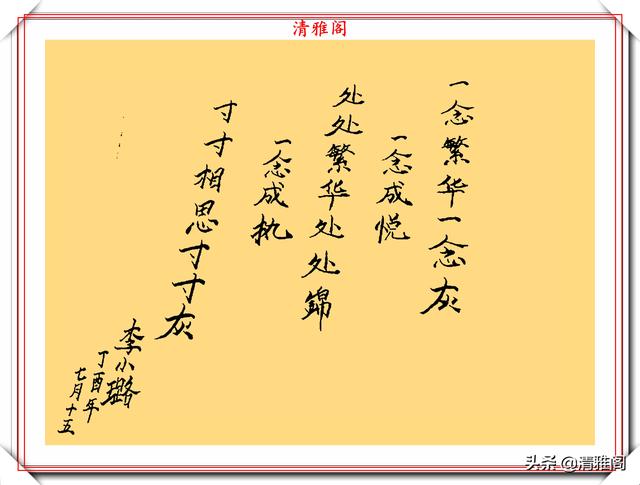 清雅阁
一念繁华一念灰
一念成悦
处处繁华处处錦
一念成执
寸寸相思寸寸灰
李小璐
丁酉年
七月十五
头条 @清雅阁